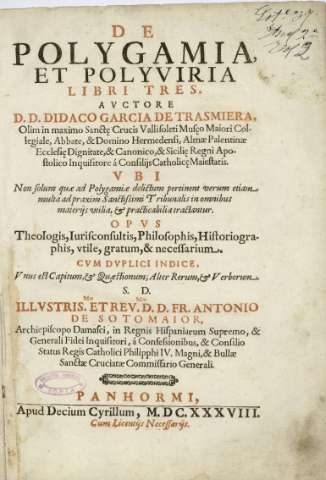 DE
POLYGAMIA,
ET POLYVIRIA
LIBRI TRES.
AVCTORE
D. D. DIDACO GARCIA DE TRASMIERA,
Olim in maximo Sanctę Crucis Vallisoleti Musęo Maiori Col-
legiale, Abbate, & Domino Hermedensi, Almæ Palentinæ
Ecclesię Dignitate, & Canonico, & Sicilię Regni Apo-
stolico Inquisitore á Consilijs Catholicę Maiestatis.
VBI
Non solum quæ ad Polygamiæ delictum pertinent verum etiam
multa ad praxim Sanctissimi Tribunalis in omnibus
materijs vtilia, & practicabilia tractantur.
OPVS
Theologis, Iurisconsultis, Philosophis, Historiogra-
phis, vtile, gratum, & necessarium.
CVM DVPLICI INDICE.
Vnus est Capitum, & Quæstionum; Alter Rerum, & Verborum.
S. D.
ILLVSTRIS. Mo ET REV. Mo D. D. FR. ANTONIO
DE SOTOMAIOR,
Archiepiscopo Damasci, in Regnis Hispaniarum Supremo, &
Generali Fidei Inquisitori, á Confessionibus, & Consilio
Status Regis Catholici Philipphi IV. Magni, & Bullæ
Sanctæ Cruciatæ Commissario Generali.
PANHORMI,
Apud Decium Cyrillum, M.DC.XXXVIII.
Cum Licentijs Necessarijs.